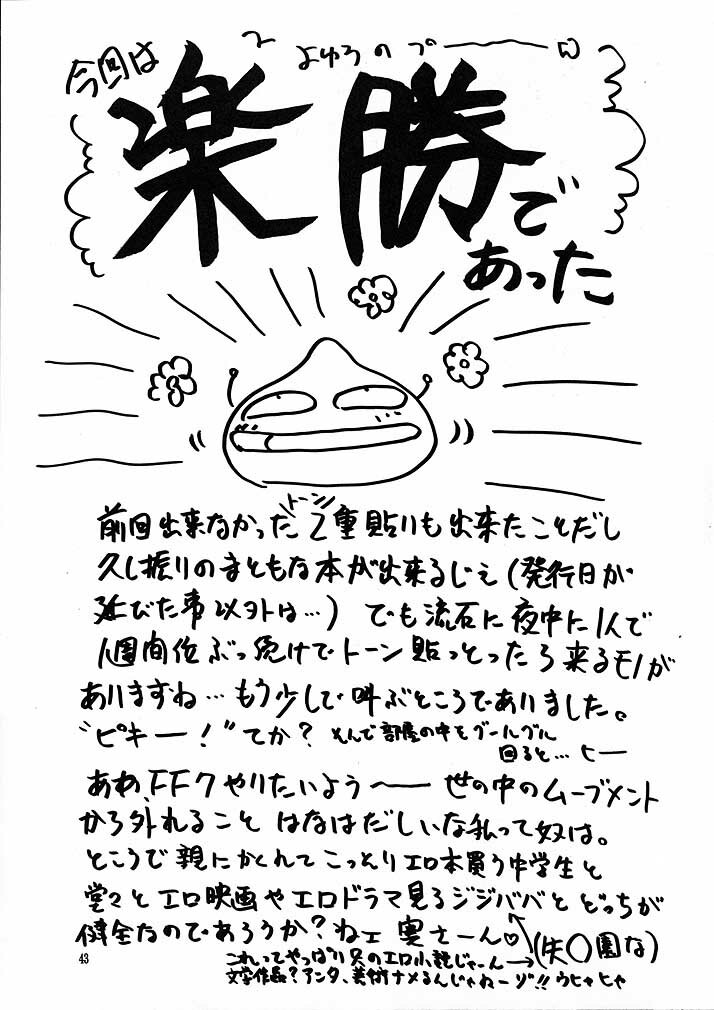 今回は
よゆうのプーーw
楽勝で
あった
トーン
前回出来なかった2重貼りも出来たことだし
久し振りのまともな本が出来るじぇ(発行日が
延びた事以外は…) でも流石に夜中に1人で
1週間位ぶっ続けでトーン貼っとったら来るモノが
ありますね…もう少しで叫ぶところでありました。
"ピキー!"てか? そんで部屋の中をグールグル
回ると… ヒー
ああ、FF7やりたいよう〜 世の中のムーブメント
から外れること はなはだしいな私って奴は。
ところで親にかくれてこっそりエロ本買う中学生と
堂々とエロ映画やエロドラマ見るジジババとどっちが
健全なのであろうか?ねェ 奥さーん♡(失○園な)
これってやっぱり只のエロ小説じゃーん→
文学作品?アンタ、芸術ナメるんじゃねーゾ!!ウヒャヒャ
43